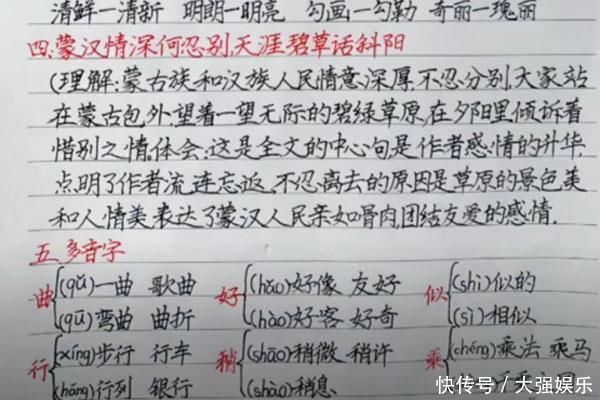 清鲜—清新 明朗—明亮 勾画—勾勒 奇丽—瑰丽
四、蒙汉情深何忍别,天涯碧草话斜阳
(理解:蒙古族和汉族人民情意深厚,不忍分别,大家站
在蒙古包外,望着一望无际的碧绿草原,在夕阳里倾诉着
惜别之情。体会:这是全文的中心句,是作者感情的升华,
点明了作者流连忘返、不忍离去的原因是草原的景色美
和人情美,表达了蒙汉人民亲如骨肉、团结友爱的感情.
五、多音字
曲 (qǔ)一曲 歌曲 好 (hǎo)好像 友好 似 (shì)似的
(qū)弯曲 曲折 (hào)好客 好奇 (sì)相似
行 (xíng)步行 行车 稍 (shāo)稍微 稍许 乘 (chéng)乘法 乘马
(háng)行列 银行 (shào)稍息
快传号/大强娱乐